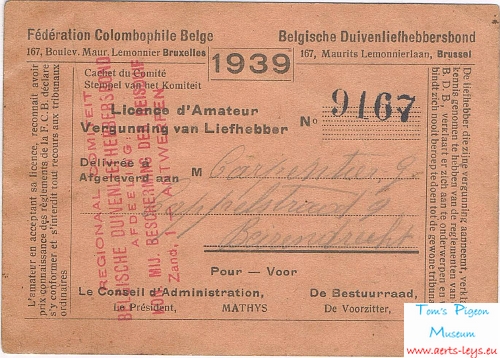 Fédération Colombophile Belge
167, Boulev. Maur. Lemonnier Bruxelles
Belgische Duivenliefhebbersbond
167, Maurits Lemonnierlaan, Brussel
1939
Cachet du Comité
Stempel van het Komiteit
Licence d'Amateur
Vergunning van Liefhebber
No 9467
Délivrée à
Afgeleverd aan
M Carpentier G.
Kappelstraat 9
Berendrecht
Pour — Voor
Le Conseil d'Administration,
De Bestuurraad,
Le Président,
MATHYS
De Voorzitter,
L'amateur en acceptant sa licence, reconnait avoir
pris connaissance des règlements de la F. C. B. déclare
s'y conformer et s'interdit tout recours aux tribunaux
ordinaires
De liefhebber die zijne vergunning aanneemt, verklaart
kennis genomen te hebben van de reglementen van den
B. D. B., verklaart er zich aan te onderwerpen en ver-
bindt zich nooit beroep te doen tot de gewone tribunalen
REGIONAAL COMITEIT
BELGISCHE DUIVENLIEFHEBBERSBOND
AFDEELING:
KON. MIJ. BESCHERMING DER REISDUIF
Zand, 1 - ANTWERPEN
Tom's Pigeon
Museum
www.aerts-leys.eu